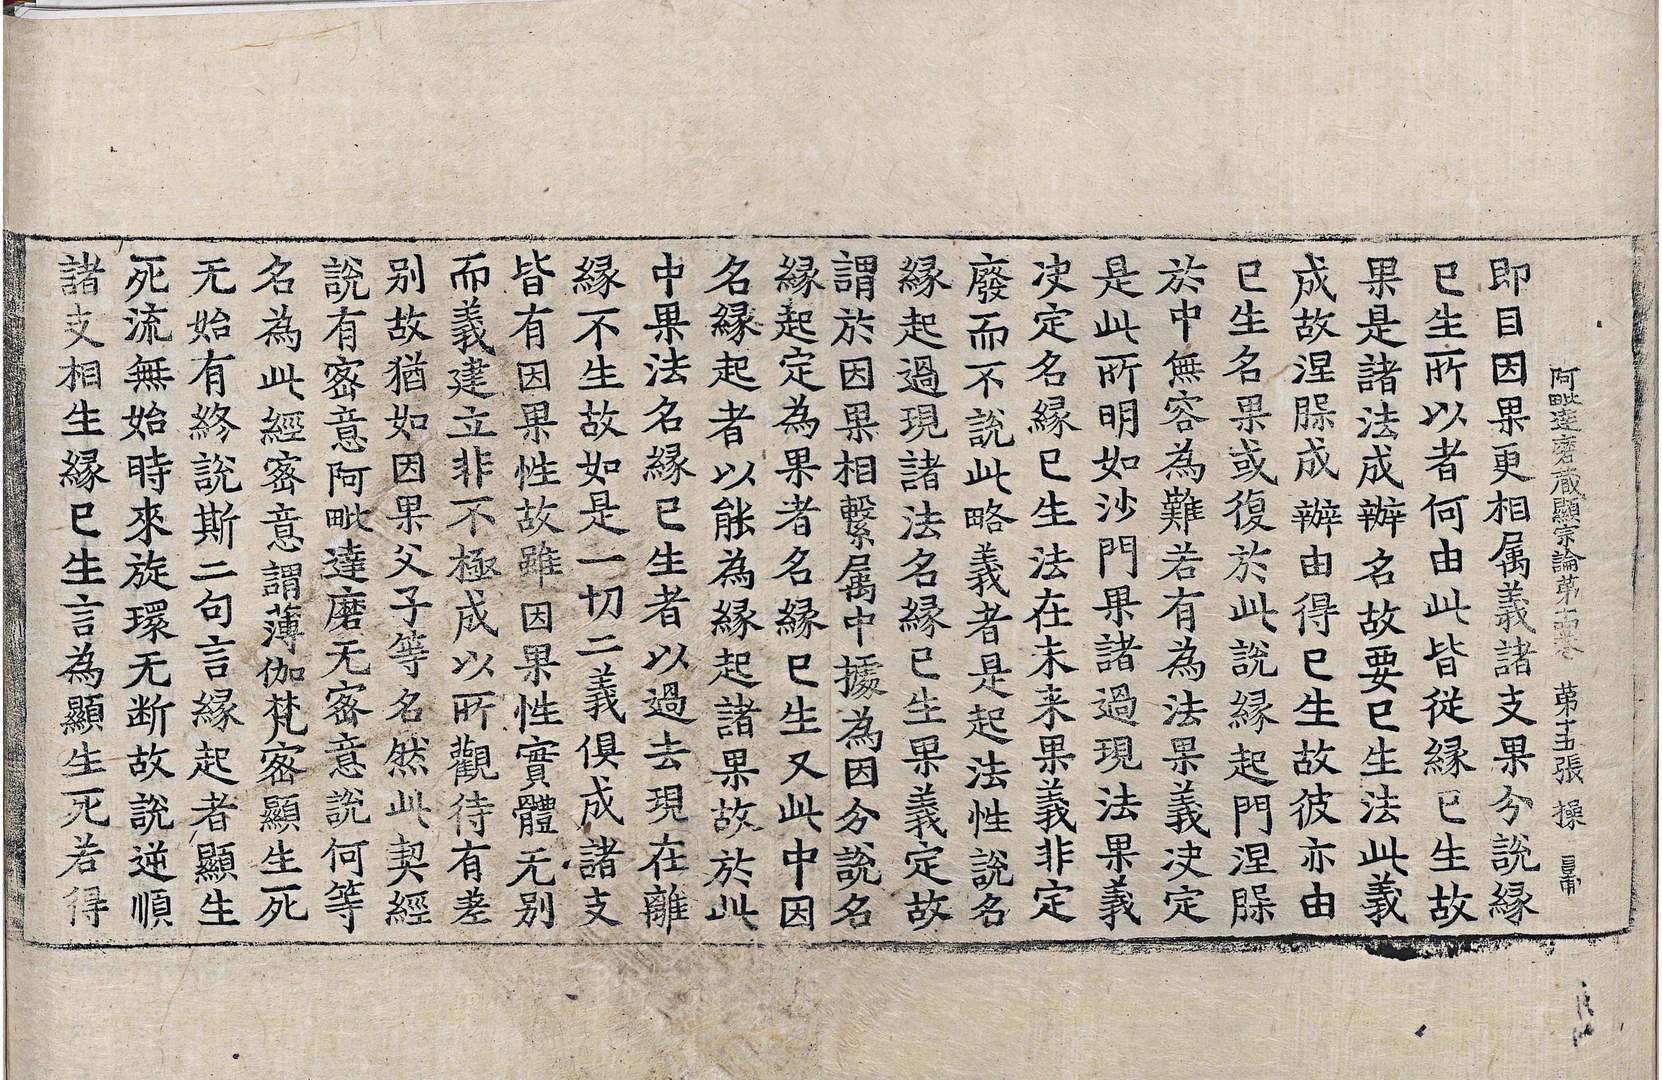 阿毗達磨蔵顯宗論第十四卷　第十五張　操
即目因果更相属義諸支果分說縁
已生所以者何由此皆從縁已生故
果是諸法成辦名故要已生法此義
成故涅槃成辦由得已生故彼亦由
已生名果或復於此說縁起門涅槃
於中無容為難若有為法果義决定
是此所明如沙門果諸過現法果義
决定名縁已生法在未来果義非定
廢而不說此略義者是起法性說名
縁起過現諸法名縁已生果義定故
謂於因果相繫属中據為因分說名
縁起定為果者名縁已生又此中因
名縁起者以能為縁起諸果故於此
中果法名縁已生者以過去現在離
縁不生故如是一切二義俱成諸支
皆有因果性故雖因果性實體无别
而義建立非不極成以所觀待有差
别故猶如因果父子等名然此契經
說有密意阿毗達磨无密意說何等
名為此經密意謂薄伽梵密顯生死
无始有終說斯二句言縁起者顯生
死流無始時來旋環无断故說逆順
諸支相生縁已生言為顯生死若得